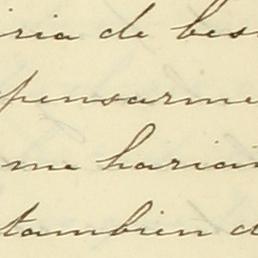 iria de bes
pensarme
me harian
tambien a